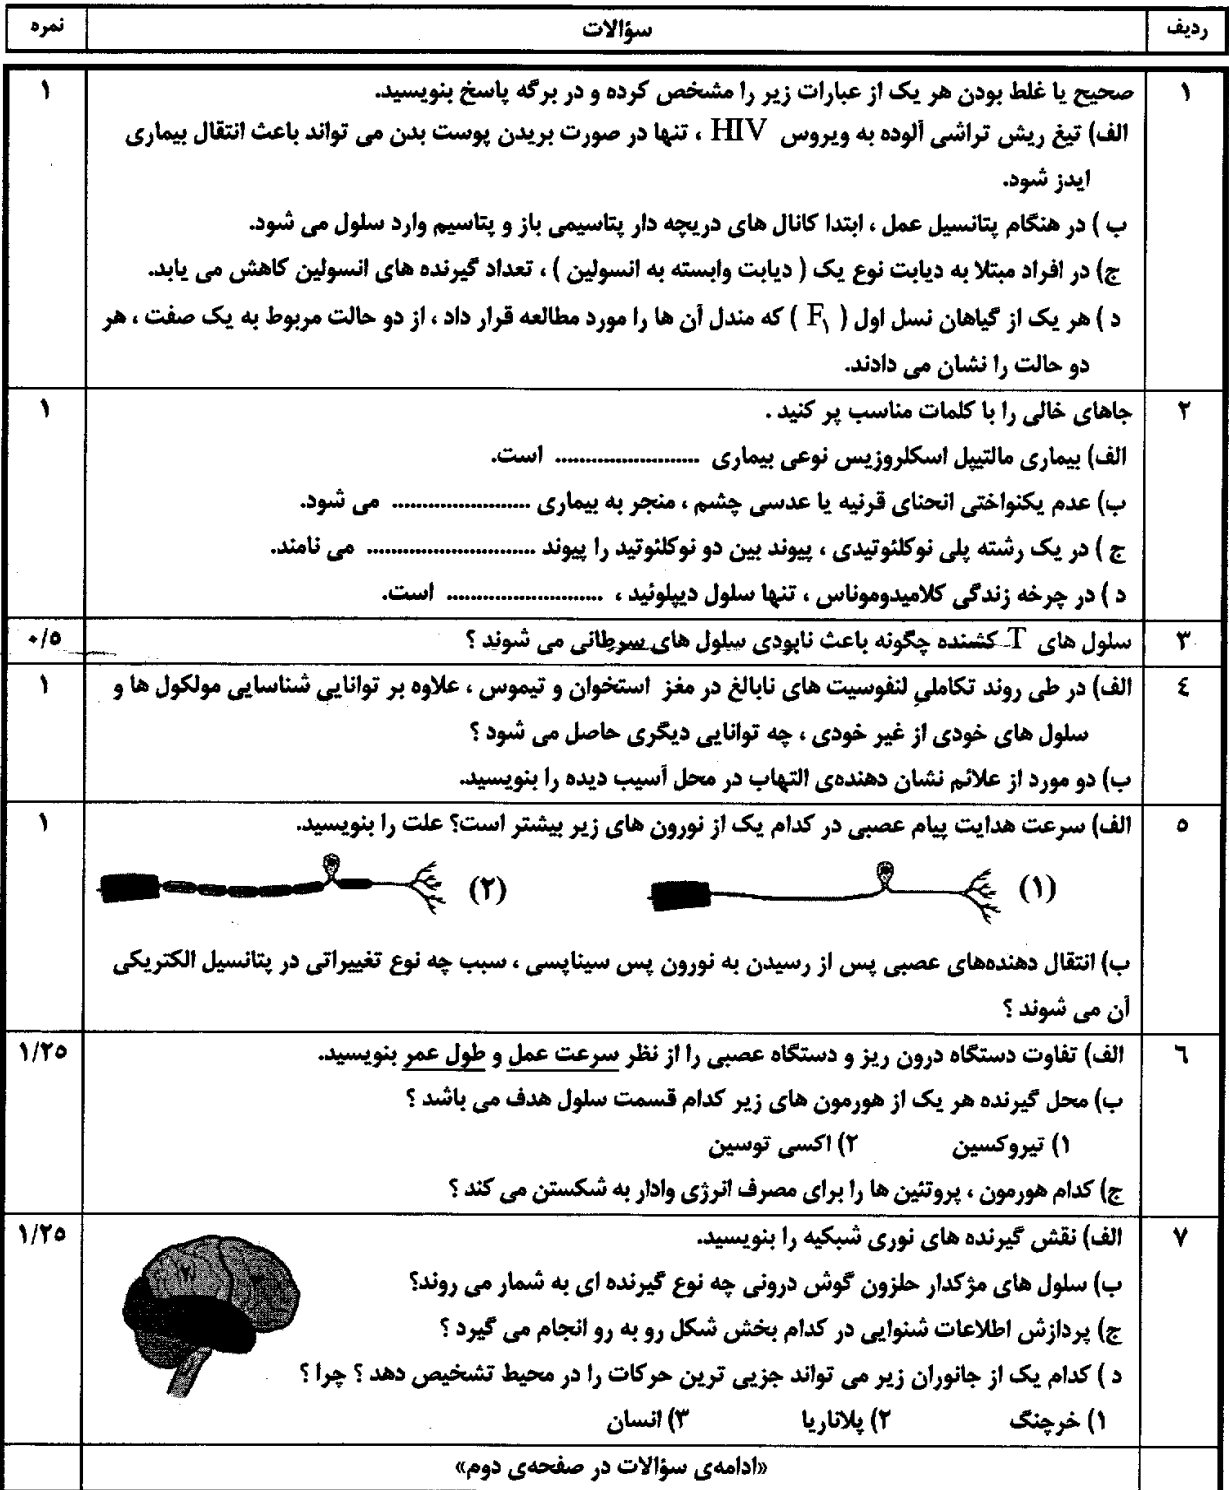 ردیف سؤالات نمره
۱ صحیح یا غلط بودن هر یک از عبارات زیر را مشخص کرده و در برگه پاسخ بنویسید. ۱
الف) تیغ ریش تراشی آلوده به ویروس HIV ، تنها در صورت بریدن پوست بدن می تواند باعث انتقال بیماری
ایدز شود.
ب ) در هنگام پتانسیل عمل ، ابتدا کانال های دریچه دار پتاسیمی باز و پتاسیم وارد سلول می شود.
ج) در افراد مبتلا به دیابت نوع یک ( دیابت وابسته به انسولین ) ، تعداد گیرنده های انسولین کاهش می یابد.
د ) هر یک از گیاهان نسل اول ( F۱ ) که مندل آن ها را مورد مطالعه قرار داد ، از دو حالت مربوط به یک صفت ، هر
دو حالت را نشان می دادند.
۲ جاهای خالی را با کلمات مناسب پر کنید . ۱
الف) بیماری مالتیپل اسکلروزیس نوعی بیماری ......................... است.
ب) عدم یکنواختی انحنای قرنیه یا عدسی چشم ، منجر به بیماری ........................ می شود.
ج ) در یک رشته پلی نوکلئوتیدی ، پیوند بین دو نوکلئوتید را پیوند ............................. می نامند.
د ) در چرخه زندگی کلامیدوموناس ، تنها سلول دیپلوئید ، ........................... است.
۳ سلول های T کشنده چگونه باعث نابودی سلول های سرطانی می شوند ؟ ۰/۵
٤ الف) در طی روند تکاملی لنفوسیت های نابالغ در مغز استخوان و تیموس ، علاوه بر توانایی شناسایی مولکول ها و ۱
سلول های خودی از غیر خودی ، چه توانایی دیگری حاصل می شود ؟
ب) دو مورد از علائم نشان دهنده‌ی التهاب در محل آسیب دیده را بنویسید.
۵ الف) سرعت هدایت پیام عصبی در کدام یک از نورون های زیر بیشتر است؟ علت را بنویسید. ۱
(۱) (۲)
ب) انتقال دهنده‌های عصبی پس از رسیدن به نورون پس سیناپسی ، سبب چه نوع تغییراتی در پتانسیل الکتریکی
آن می شوند ؟
٦ الف) تفاوت دستگاه درون ریز و دستگاه عصبی را از نظر سرعت عمل و طول عمر بنویسید. ۱/۲۵
ب) محل گیرنده هر یک از هورمون های زیر کدام قسمت سلول هدف می باشد ؟
۱) تیروکسین ۲) اکسی توسین
ج) کدام هورمون ، پروتئین ها را برای مصرف انرژی وادار به شکستن می کند ؟
۷ الف) نقش گیرنده های نوری شبکیه را بنویسید. ۱/۲۵
ب) سلول های مژکدار حلزون گوش درونی چه نوع گیرنده ای به شمار می روند؟
ج) پردازش اطلاعات شنوایی در کدام بخش شکل رو به رو انجام می گیرد ؟
د ) کدام یک از جانوران زیر می تواند جزیی ترین حرکات را در محیط تشخیص دهد ؟ چرا ؟
۱) خرچنگ ۲) پلاناریا ۳) انسان
«ادامه‌ی سؤالات در صفحه‌ی دوم»